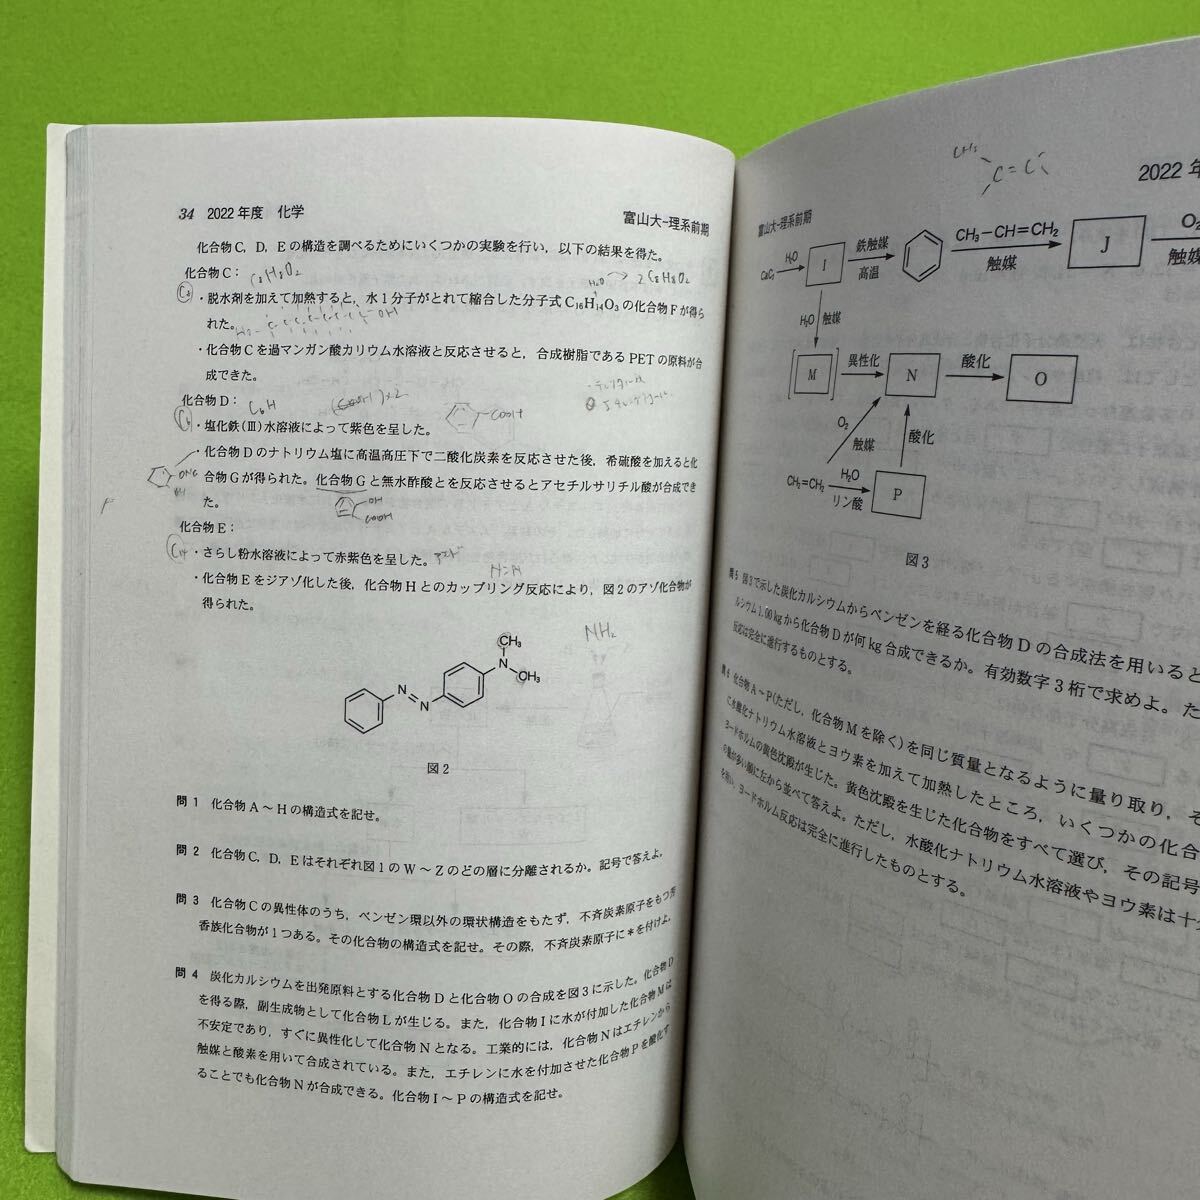 34 2022年度 化学
富山大-理系前期
化合物C,D,Eの構造を調べるためにいくつかの実験を行い,以下の結果を得た。
化合物C: C8H8O2
H2O 2C8H8O2
C8
・脱水剤を加えて加熱すると,水1分子がとれて縮合した分子式C16H14O3の化合物Fが得ら
れた。
・化合物Cを過マンガン酸カリウム水溶液と反応させると,合成樹脂であるPETの原料が合
成できた。
化合物D: C6H
COOH
・塩化鉄(Ⅲ)水溶液によって紫色を呈した。
・化合物Dのナトリウム塩に高温高圧下で二酸化炭素を反応させた後,希硫酸を加えると化
合物Gが得られた。化合物Gと無水酢酸とを反応させるとアセチルサリチル酸が合成でき
た。
OH
COOH
化合物E:
・さらし粉水溶液によって赤紫色を呈した。
・化合物Eをジアゾ化した後,化合物Hとのカップリング反応により,図2のアゾ化合物が
得られた。
NH2
CH3
N
CH3
N
N
図2
問1 化合物A~Hの構造式を記せ。
問2 化合物C,D,Eはそれぞれ図1のW~Zのどの層に分離されるか。記号で答えよ。
問3 化合物Cの異性体のうち,ベンゼン環以外の環状構造をもたず,不斉炭素原子をもつ芳
香族化合物が1つある。その化合物の構造式を記せ。その際,不斉炭素原子に*を付けよ。
問4 炭化カルシウムを出発原料とする化合物Dと化合物Oの合成を図3に示した。化合物D
を得る際,副生成物として化合物Lが生じる。また,化合物Iに水が付加した化合物Mは
不安定であり,すぐに異性化して化合物Nとなる。工業的には,化合物Nはエチレンから
触媒と酸素を用いて合成されている。また,エチレンに水を付加させた化合物Pを酸化す
ることでも化合物Nが合成できる。化合物I~Pの構造式を記せ。
CH3
C=C
2022年
富山大-理系前期
CaC2
H2O
I
鉄触媒
高温
CH3-CH=CH2
触媒
J
O2
触媒
H2O 触媒
M
異性化
N
酸化
O
O2
触媒
酸化
CH2=CH2
H2O
リン酸
P
図3
問5 図3で示した炭化カルシウムからベンゼンを経る化合物Dの合成法を用いると
ルシウム1.00kgから化合物Dが何kg合成できるか。有効数字3桁で求めよ。た
反応は完全に進行するものとする。
問6 化合物A~P(ただし,化合物Mを除く)を同じ質量となるように量り取り,そ
に水酸化ナトリウム水溶液とヨウ素を加えて加熱したところ,いくつかの化合
ヨードホルムの黄色沈殿が生じた。黄色沈殿を生じた化合物をすべて選び,その記号
の量が多い順に左から並べて答えよ。ただし,水酸化ナトリウム水溶液やヨウ素は十分
を用い,ヨードホルム反応は完全に進行したものとする。